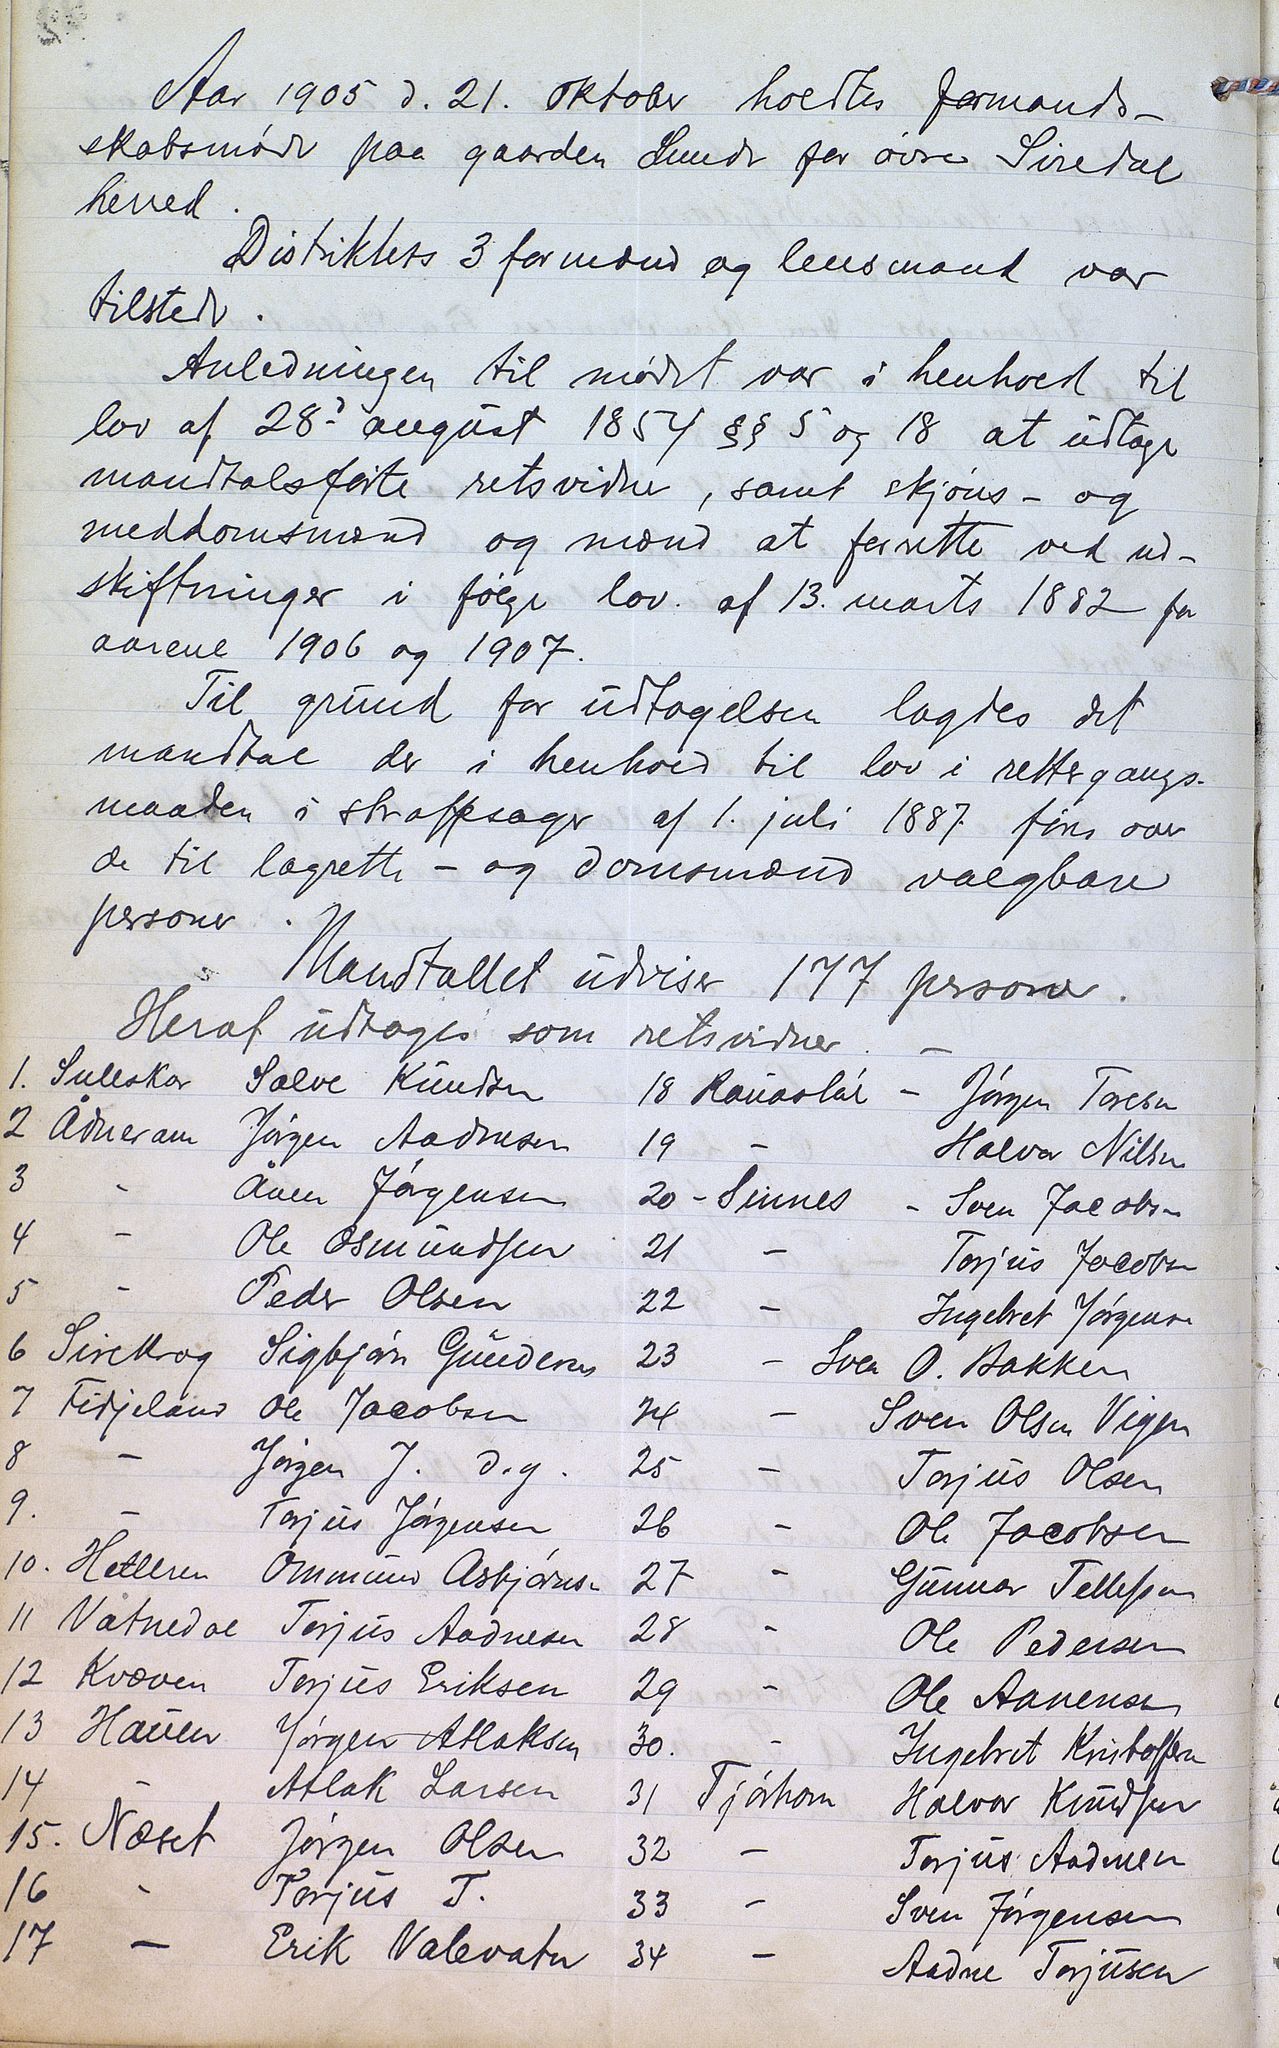 Aar 1905 d. 21. oktober holdtes formands-
skabsmøde paa gaarden Lunde for øvre Siredal
herred.
Distriktets 3 formænd og lensmand var
tilstede.
Anledningen til mødet var i henhold til
lov af 28d august 1854 §§ 5 og 18 at udtage
mandtalsførte retsvidner, samt skjøns- og
meddomsmænd og mænd at forrette ved ud-
skiftninger i følge lov. af 13. marts 1882 for
aarene 1906 og 1907.
Til grund for udtagelsen lagdes det
mandtal der i henhold til lov i rettergangs-
maaden i straffesager af 1. juli 1887 føres over
de til lagrette- og domsmænd valgbare
personer.
Mandtallet udviser 177 personer.
Heraf udtages som retsvidner. -
1. Suleskar Salve Knudsen
2 Ådneram Jørgen Aadnesen
3 - Ånen Jørgensen
4 - Ole Osmundsen
5 - Peder Olsen
6 Sirekrog Sigbjørn Gundersen
7 Fidjeland Ole Jacobsen
8 - Jørgen J. d.y.
9. - Torjus Jørgensen
10. Hetleren Ommund Asbjørnsen
11 Vatnedal Torjus Aadnesen
12 Kvæven Torjus Eriksen
13 Haugen Jørgen Atlaksen
14 - Atlak Larsen
15. Næset Jørgen Olsen
16 - Torjus T.
17 - Erik Valevatn
18 - Jørgen Toresen
19 - Halvor Nilsen
20 - Sinnes - Sven Jacobsen
21 - Torjus Jacobsen
22 - Ingebret Jørgensen
23 - Sven O. Bakken
24 - Sven Olsen Vigen
25 - Torjus Olsen
26 - Ole Jacobsen
27 - Gunnar Tellefsen
28 - Ole Pedersen
29 - Ole Aanensen
30. - Ingebret Kristoffersen
31 Tjørhom Halvor Knudsen
32 - Torjus Aadnesen
33 - Sven Jørgensen
34 - Aadne Torjusen